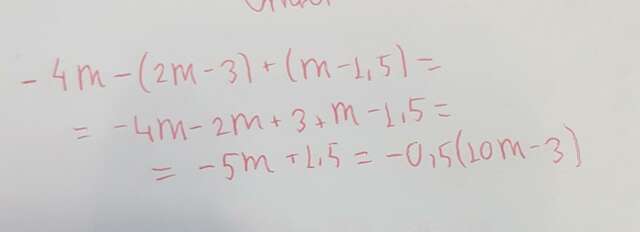 -4m-(2m-3)+(m-1,5)=
= -4m-2m+3+m-1,5=
= -5m+1,5 = -0,5(10m-3)